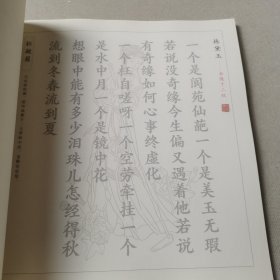 林黛玉
一个是阆苑仙葩一个是美玉无瑕
若说没奇缘今生偏又遇着他若说
有奇缘如何心事终虚化
一个枉自嗟呀一个空劳牵挂一个
是水中月一个是镜中花
想眼中能有多少泪珠儿怎经得秋
流到冬春流到夏
枉凝眉